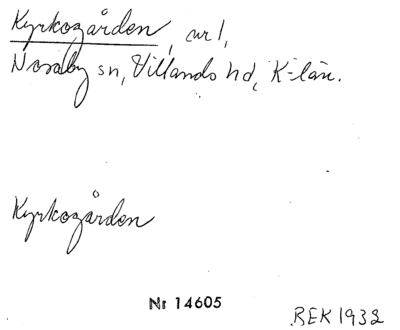 Kyrkogården, nr 1,
Nosaby sn, Villands hd, K-län.
Kyrkogården
Nr 14605
BEK 1932